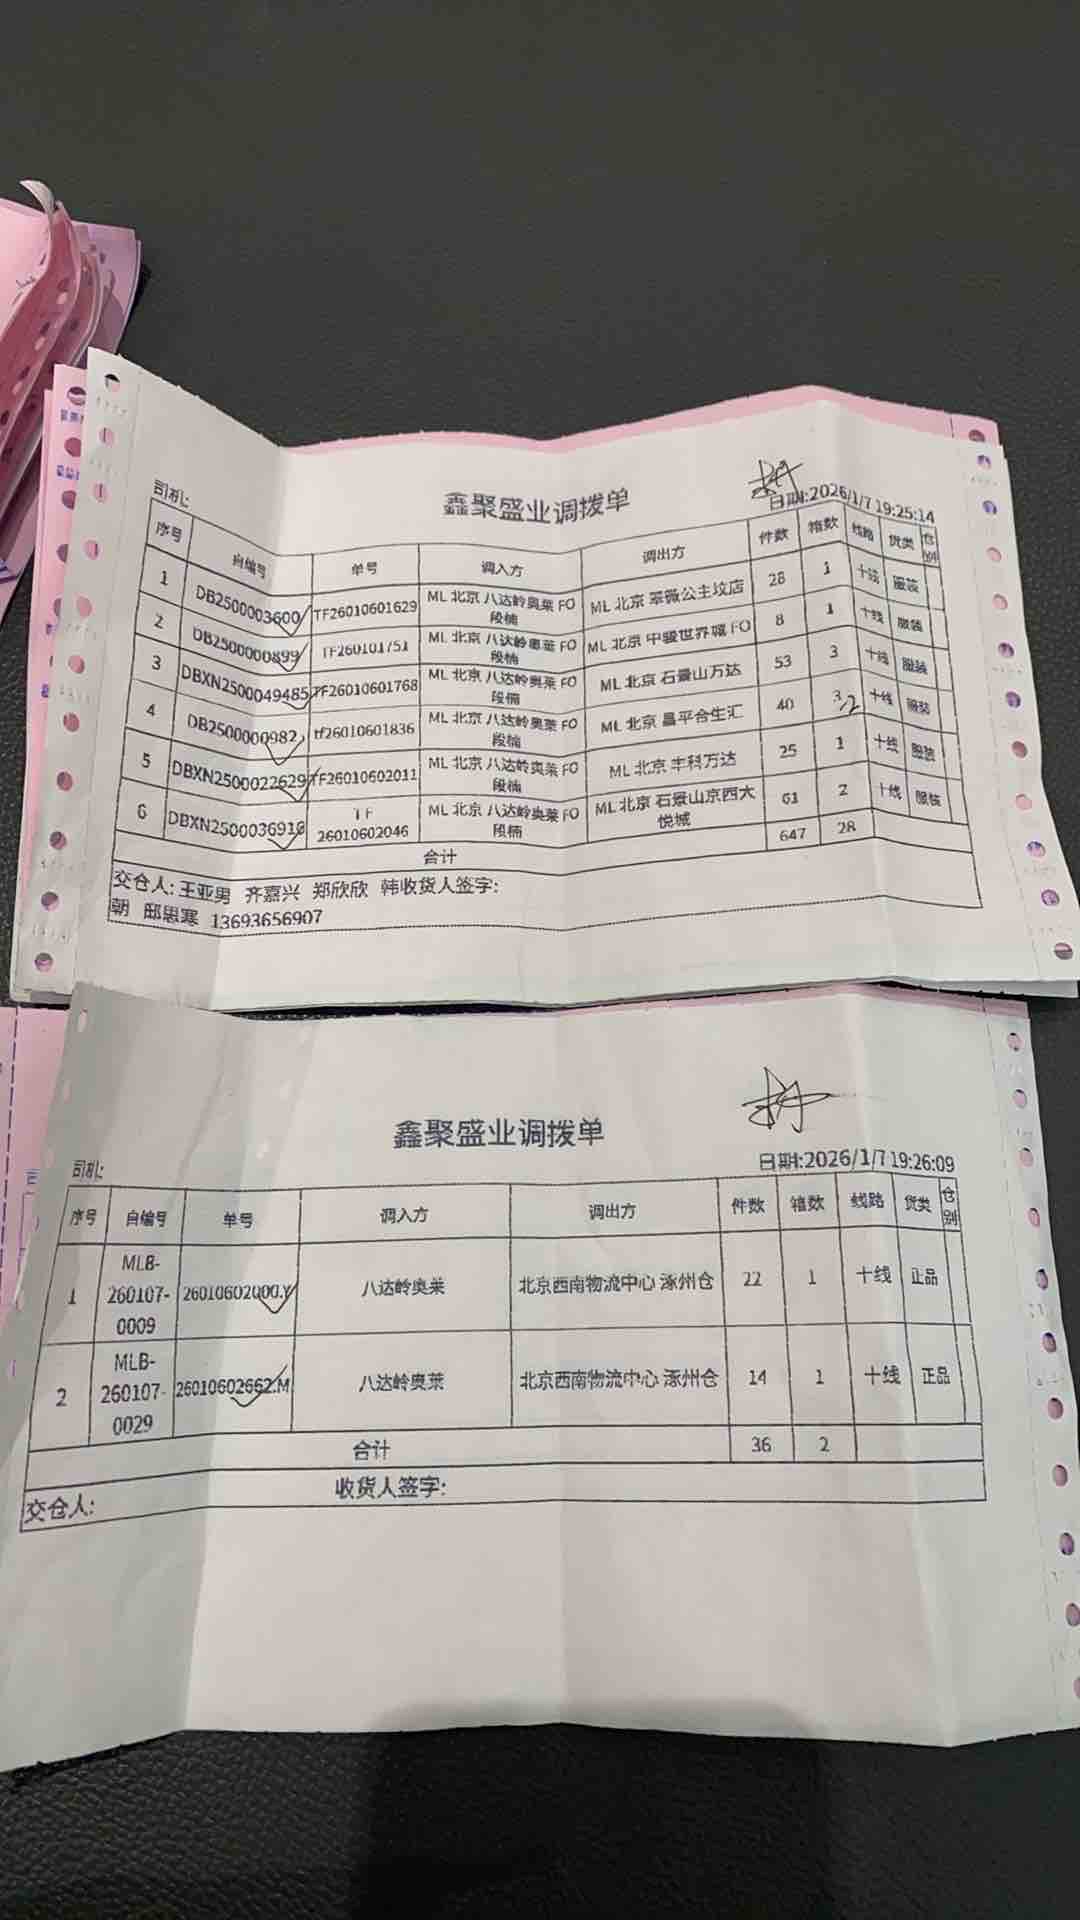 鑫聚盛业调拨单
司机: 日期:2026/1/7 19:25:14
序号 自编号 单号 调入方 调出方 件数 箱数 线路 货类 仓别
1 DB2500003600 TF26010601629 ML 北京 八达岭奥莱 FO 段楠 ML 北京 翠微公主坟店 28 1 十线 服装
2 DB2500000899 TF260101751 ML 北京 八达岭奥莱 FO 段楠 ML 北京 中骏世界城 FO 8 1 十线 服装
3 DBXN2500049485 TF26010601768 ML 北京 八达岭奥莱 FO 段楠 ML 北京 石景山万达 53 3 十线 服装
4 DB2500000982 tf26010601836 ML 北京 八达岭奥莱 FO 段楠 ML 北京 昌平合生汇 40 3/2 十线 服装
5 DBXN2500022629 TF26010602011 ML 北京 八达岭奥莱 FO 段楠 ML 北京 丰科万达 25 1 十线 服装
6 DBXN2500036918 TF 26010602046 ML 北京 八达岭奥莱 FO 段楠 ML 北京 石景山京西大悦城 61 2 十线 服装
合计 647 28
交仓人: 王亚男 齐嘉兴 郑欣欣 韩收货人签字:
朝 邸思寒 13693656907
鑫聚盛业调拨单
司机: 日期:2026/1/7 19:26:09
序号 自编号 单号 调入方 调出方 件数 箱数 线路 货类 仓别
1 MLB-260107-0009 26010602000.Y 八达岭奥莱 北京西南物流中心 涿州仓 22 1 十线 正品
2 MLB-260107-0029 26010602662.M 八达岭奥莱 北京西南物流中心 涿州仓 14 1 十线 正品
合计 36 2
交仓人: 收货人签字: